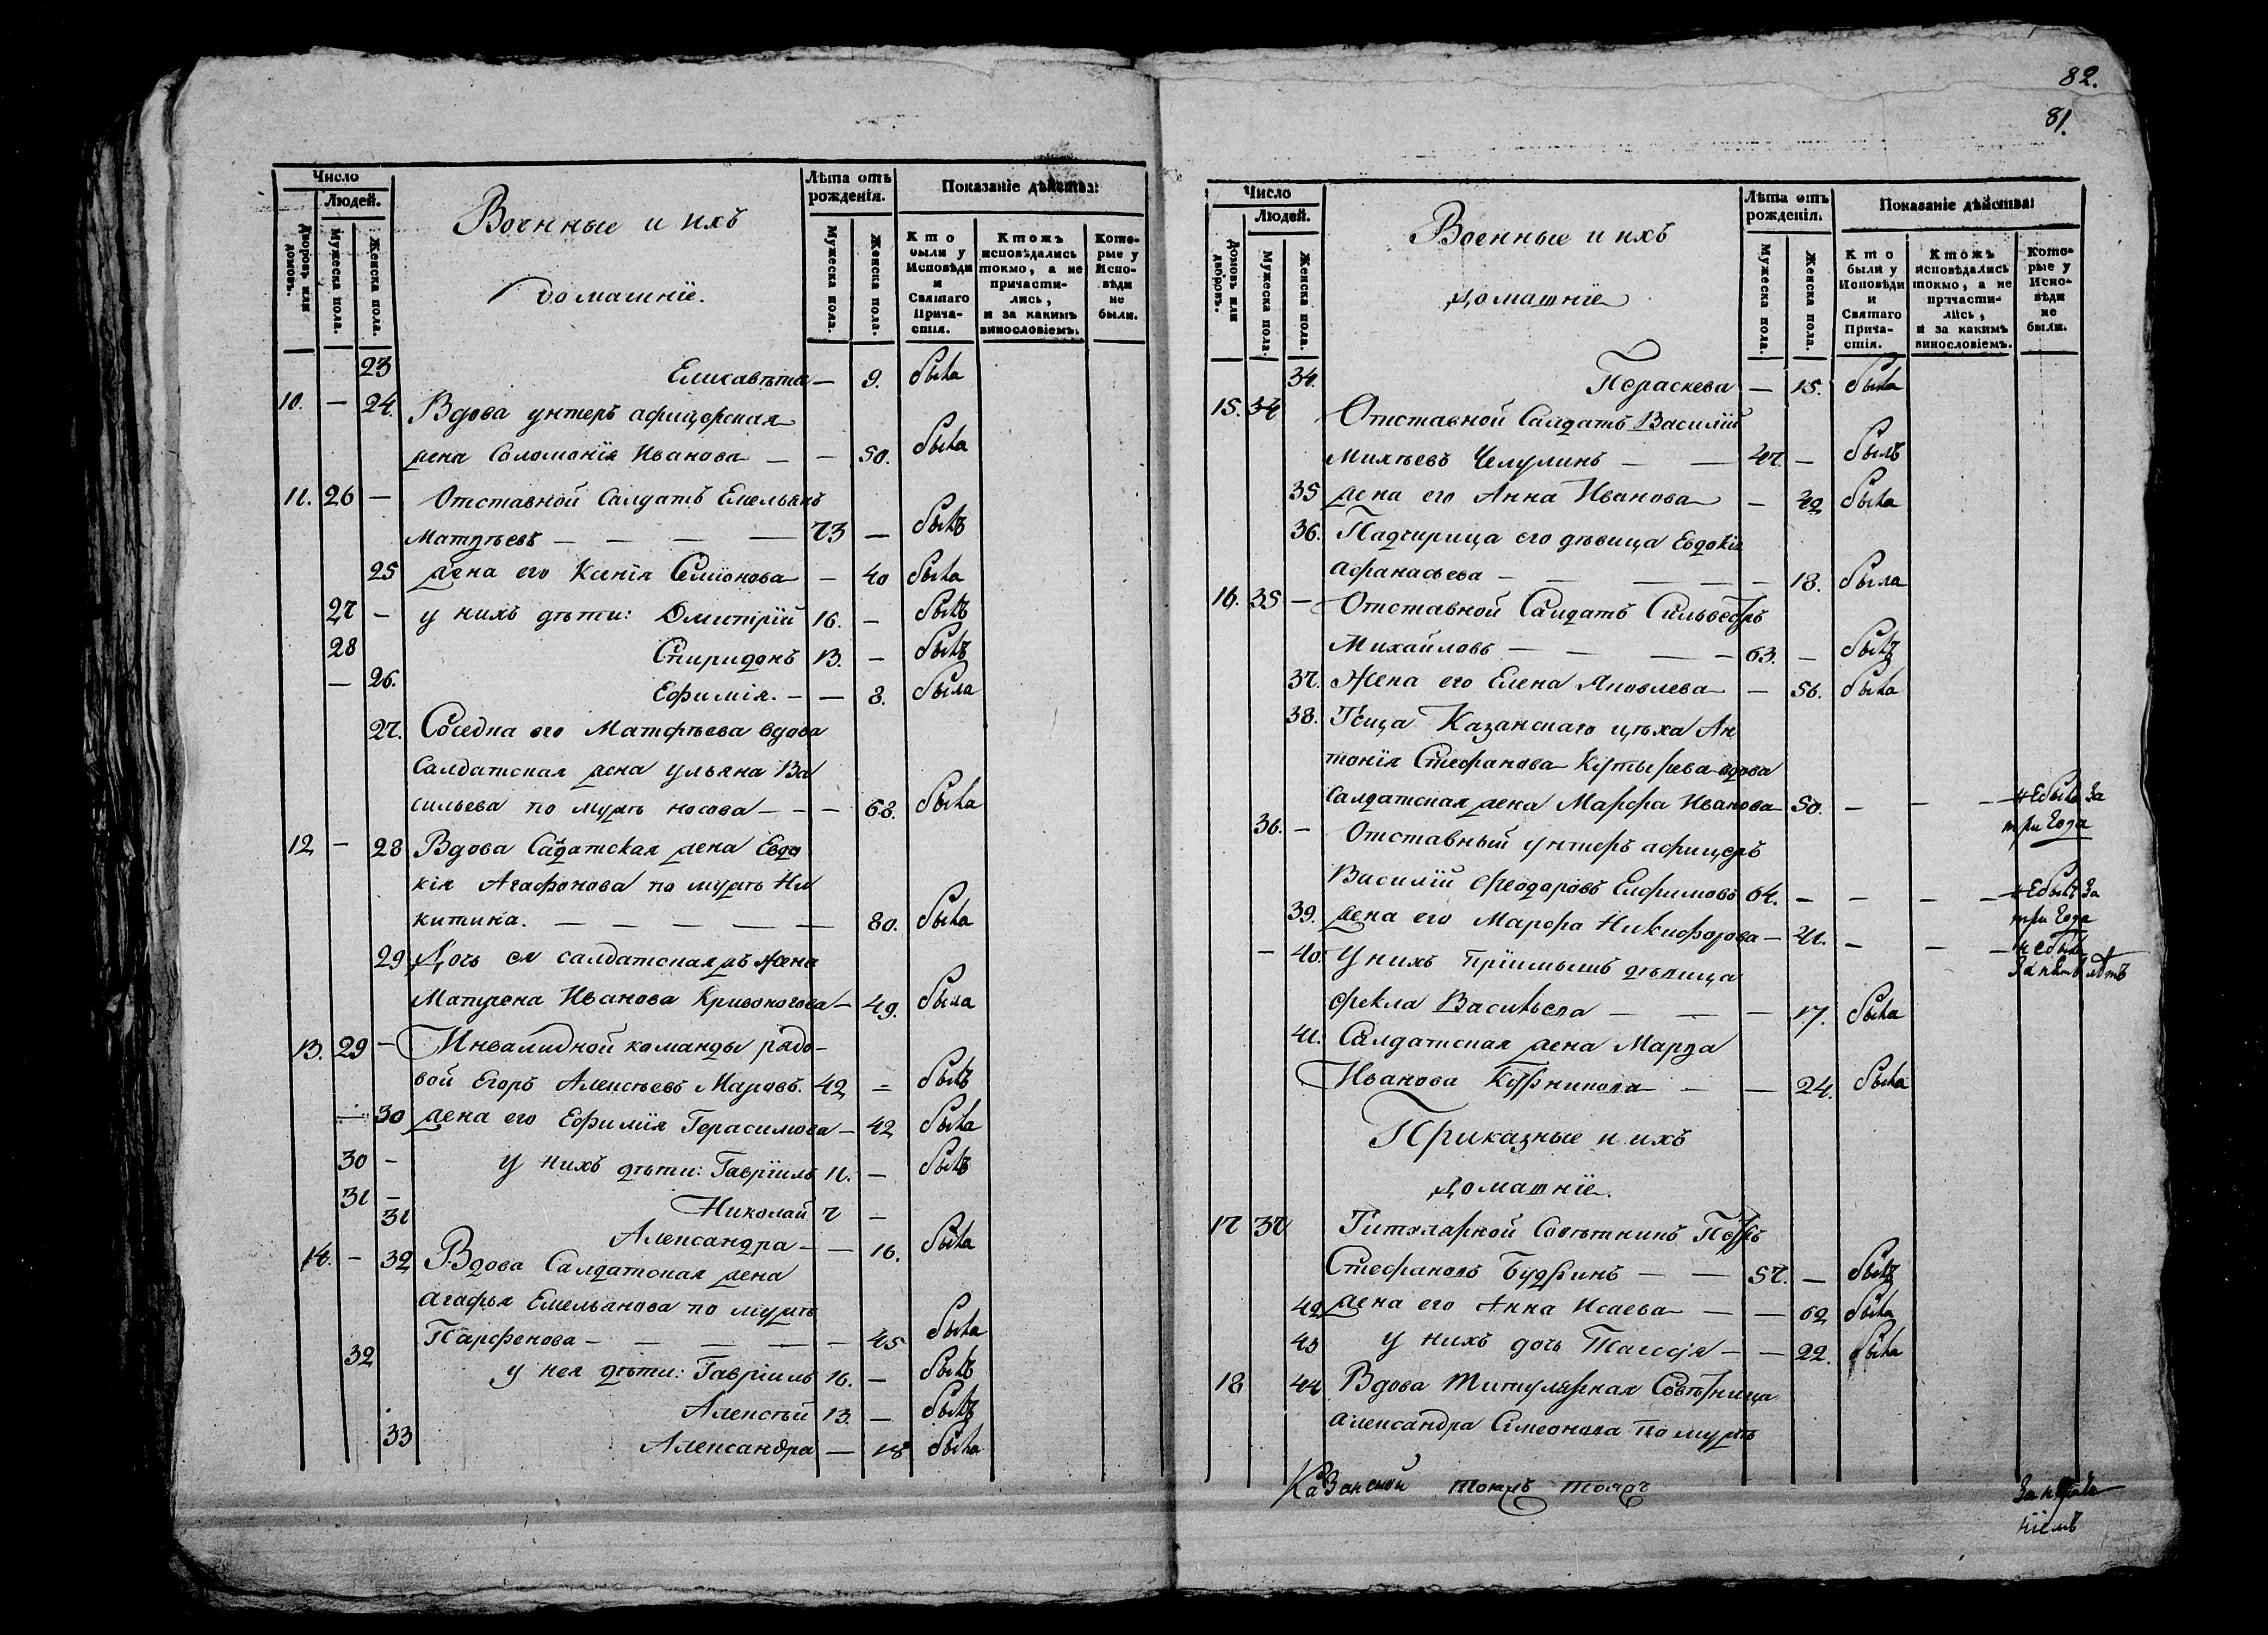 82.
81.
Число
Людей.
Дворовъ или домовъ.
Мужеска пола.
Женска пола.
Военные и ихъ
домашніе.
Лѣта отъ рожденія.
Мужеска пола.
Женска пола.
Показаніе дѣйства:
Кто были у Исповѣди и Святаго Причастія.
Ктожъ исповѣдались токмо, а не причастились, и за какимъ винословіемъ.
Которые у Исповѣди не были.
23 Елисавѣта — 9. была
10. — 24. Вдова унтеръ афицерская
жена Соломонія Иванова — — 50. была
11. 26 — Отставной Салдатъ Емельянъ
Матвѣевъ — — — — 73 — былъ
25 жена его Ксенія Семіонова — 40 была
27 — у нихъ дѣти: Дмитрій 16. — былъ
28 Спиридонъ 13. — былъ
— 26. Ефимія. — — 8. была
27. Соседка его Матфѣева вдова
Салдатская жена Ульяна Ва
сильева по мужѣ носова — — — 63. была
12 — 28 Вдова Садатская жена Евдо
кія Агафонова по мужѣ Ни
китина. — — — — — 80. была
29 Дочь ея салдатская жъ жена
Матрена Иванова Кривоногова — 49. была
13. 29 — Инвалидной команды рядо-
вой Егоръ Алексѣевъ Маровъ. 42 = былъ
— 30 жена его Ефимія Герасимова — 42 была
30 — у нихъ дѣти: Гавріилъ 11. — былъ
31 — Николай 7 —
31 Александра — — 16. была
14. — 32 Вдова Салдатская жена
Агафья Емельянова по мужѣ
Парфенова — — — — — 45 была
32 у нея дѣти: Гавріилъ 16. — былъ
Алексѣй 13. — былъ
33 Александра — 18 была
Число
Людей.
Домовъ или дворовъ.
Мужеска пола.
Женска пола.
Военные и ихъ
домашніе
Лѣта отъ рожденія.
Мужеска пола.
Женска пола.
Показаніе дѣйства:
Кто были у Исповѣди и Святаго Причастія.
Ктожъ исповѣдались токмо, а не причастились, и за какимъ винословіемъ.
Которые у Исповѣди не были.
34. Параскева — 15. была
15. 34 Отставной Салдатъ Василій
Михѣевъ Челулинъ — — 47. — былъ
35 жена его Анна Иванова — 42 была
36. Падчирица его дѣвица Евдокія
Афанасьева — — — — — 18. была
16. 35 — Отставной Салдатъ Сильвестръ
Михайловъ — — — — 63. — былъ
37. Жена его Елена Яковлева — 56. была
38. Казанскаго цѣха Ан
тонія Стефанова вдова
Салдатская жена Марфа Иванова 50. — — — не была за
три года
36. — Отставный унтеръ афицеръ
Василій Феодоровъ Ефимовъ 64. — — — — не былъ за
три года
39. жена его Марфа Никифорова — 41. — — — не была
за пять лѣтъ
— 40. У нихъ пріимышъ дѣвица
Фекла Васильева — — — 17. была
41. Салдатская жена Марѳа
Иванова — — 24. была
Приказные и ихъ
домашніе.
17 37 Титулярной Совѣтникъ Петръ
Стефановъ Будринъ — — 57. — былъ
42 жена его Анна Исаева — — 62 была
43 у нихъ дочь Таисія — — 22. была
18 44 Вдова Титулярная Совѣтница
Александра Симеонова по мужѣ
Казанской